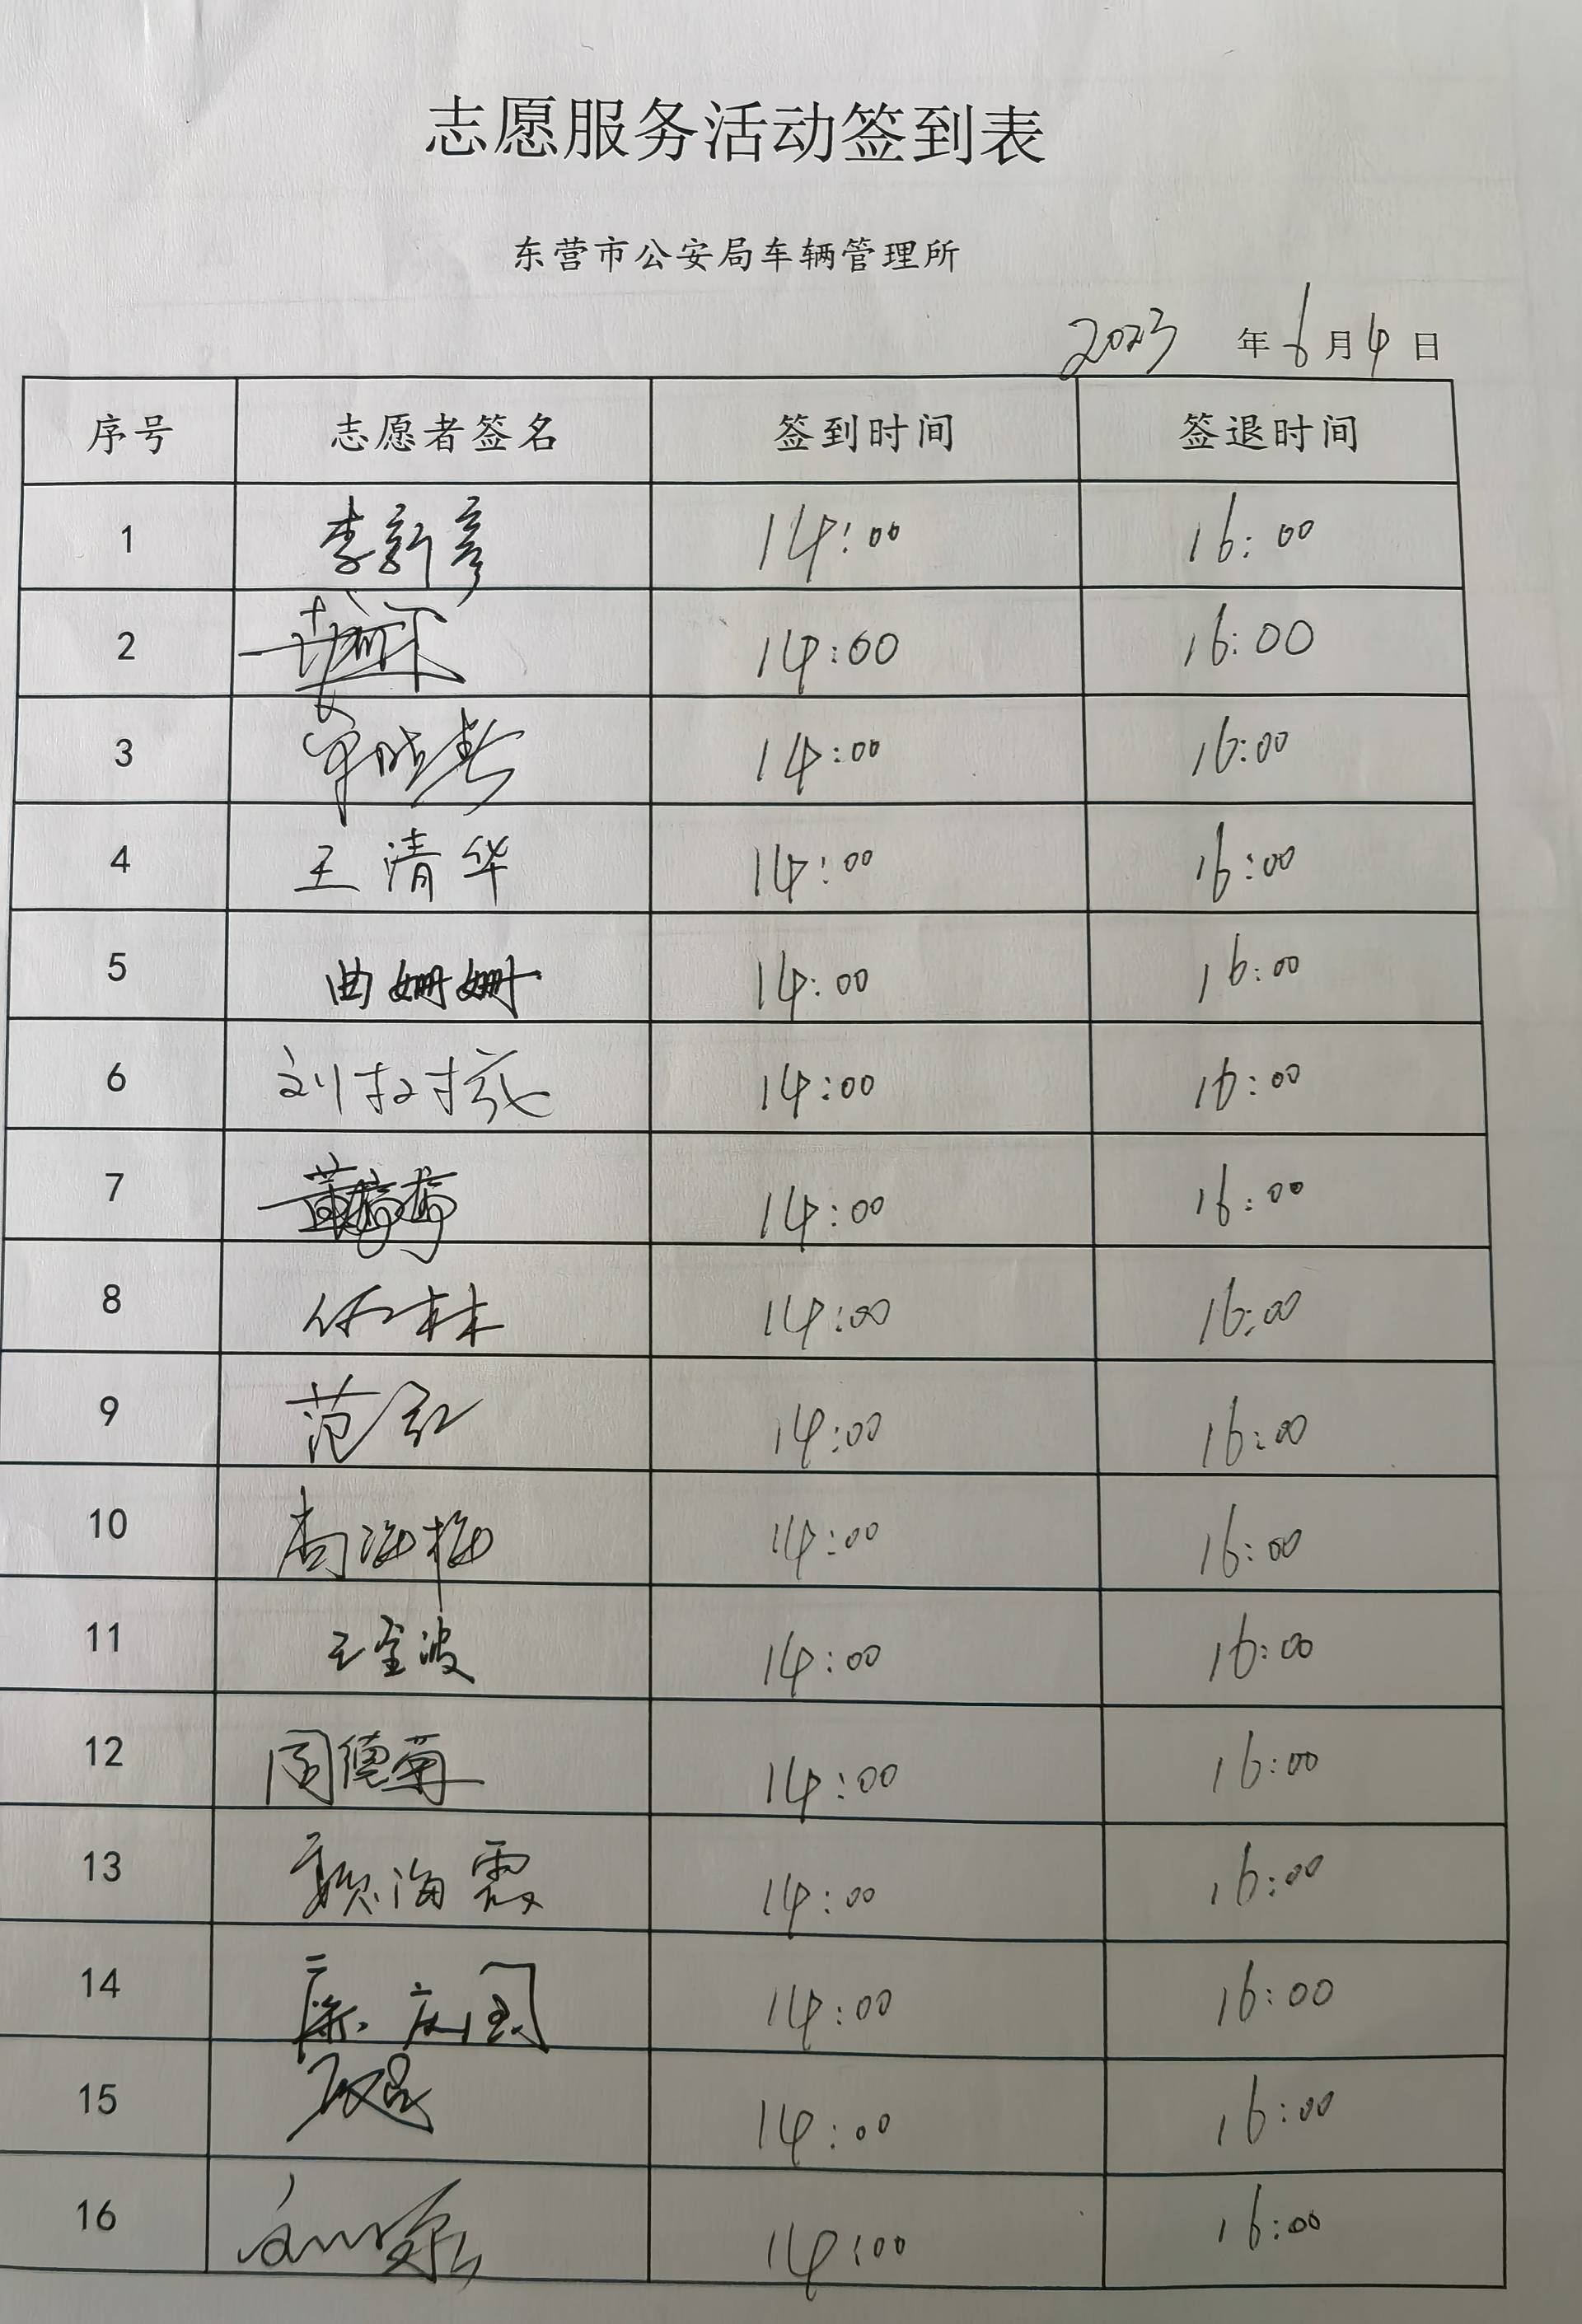 志愿服务活动签到表
东营市公安局车辆管理所
2023 年 6 月 4 日
序号 志愿者签名 签到时间 签退时间
1 李新彦 14:00 16:00
2 14:00 16:00
3 14:00 16:00
4 王清华 14:00 16:00
5 曲姗姗 14:00 16:00
6 刘 14:00 16:00
7 14:00 16:00
8 任林 14:00 16:00
9 范红 14:00 16:00
10 尚海梅 14:00 16:00
11 王宝波 14:00 16:00
12 周德菊 14:00 16:00
13 魏海霞 14:00 16:00
14 康庆国 14:00 16:00
15 14:00 16:00
16 14:00 16:00